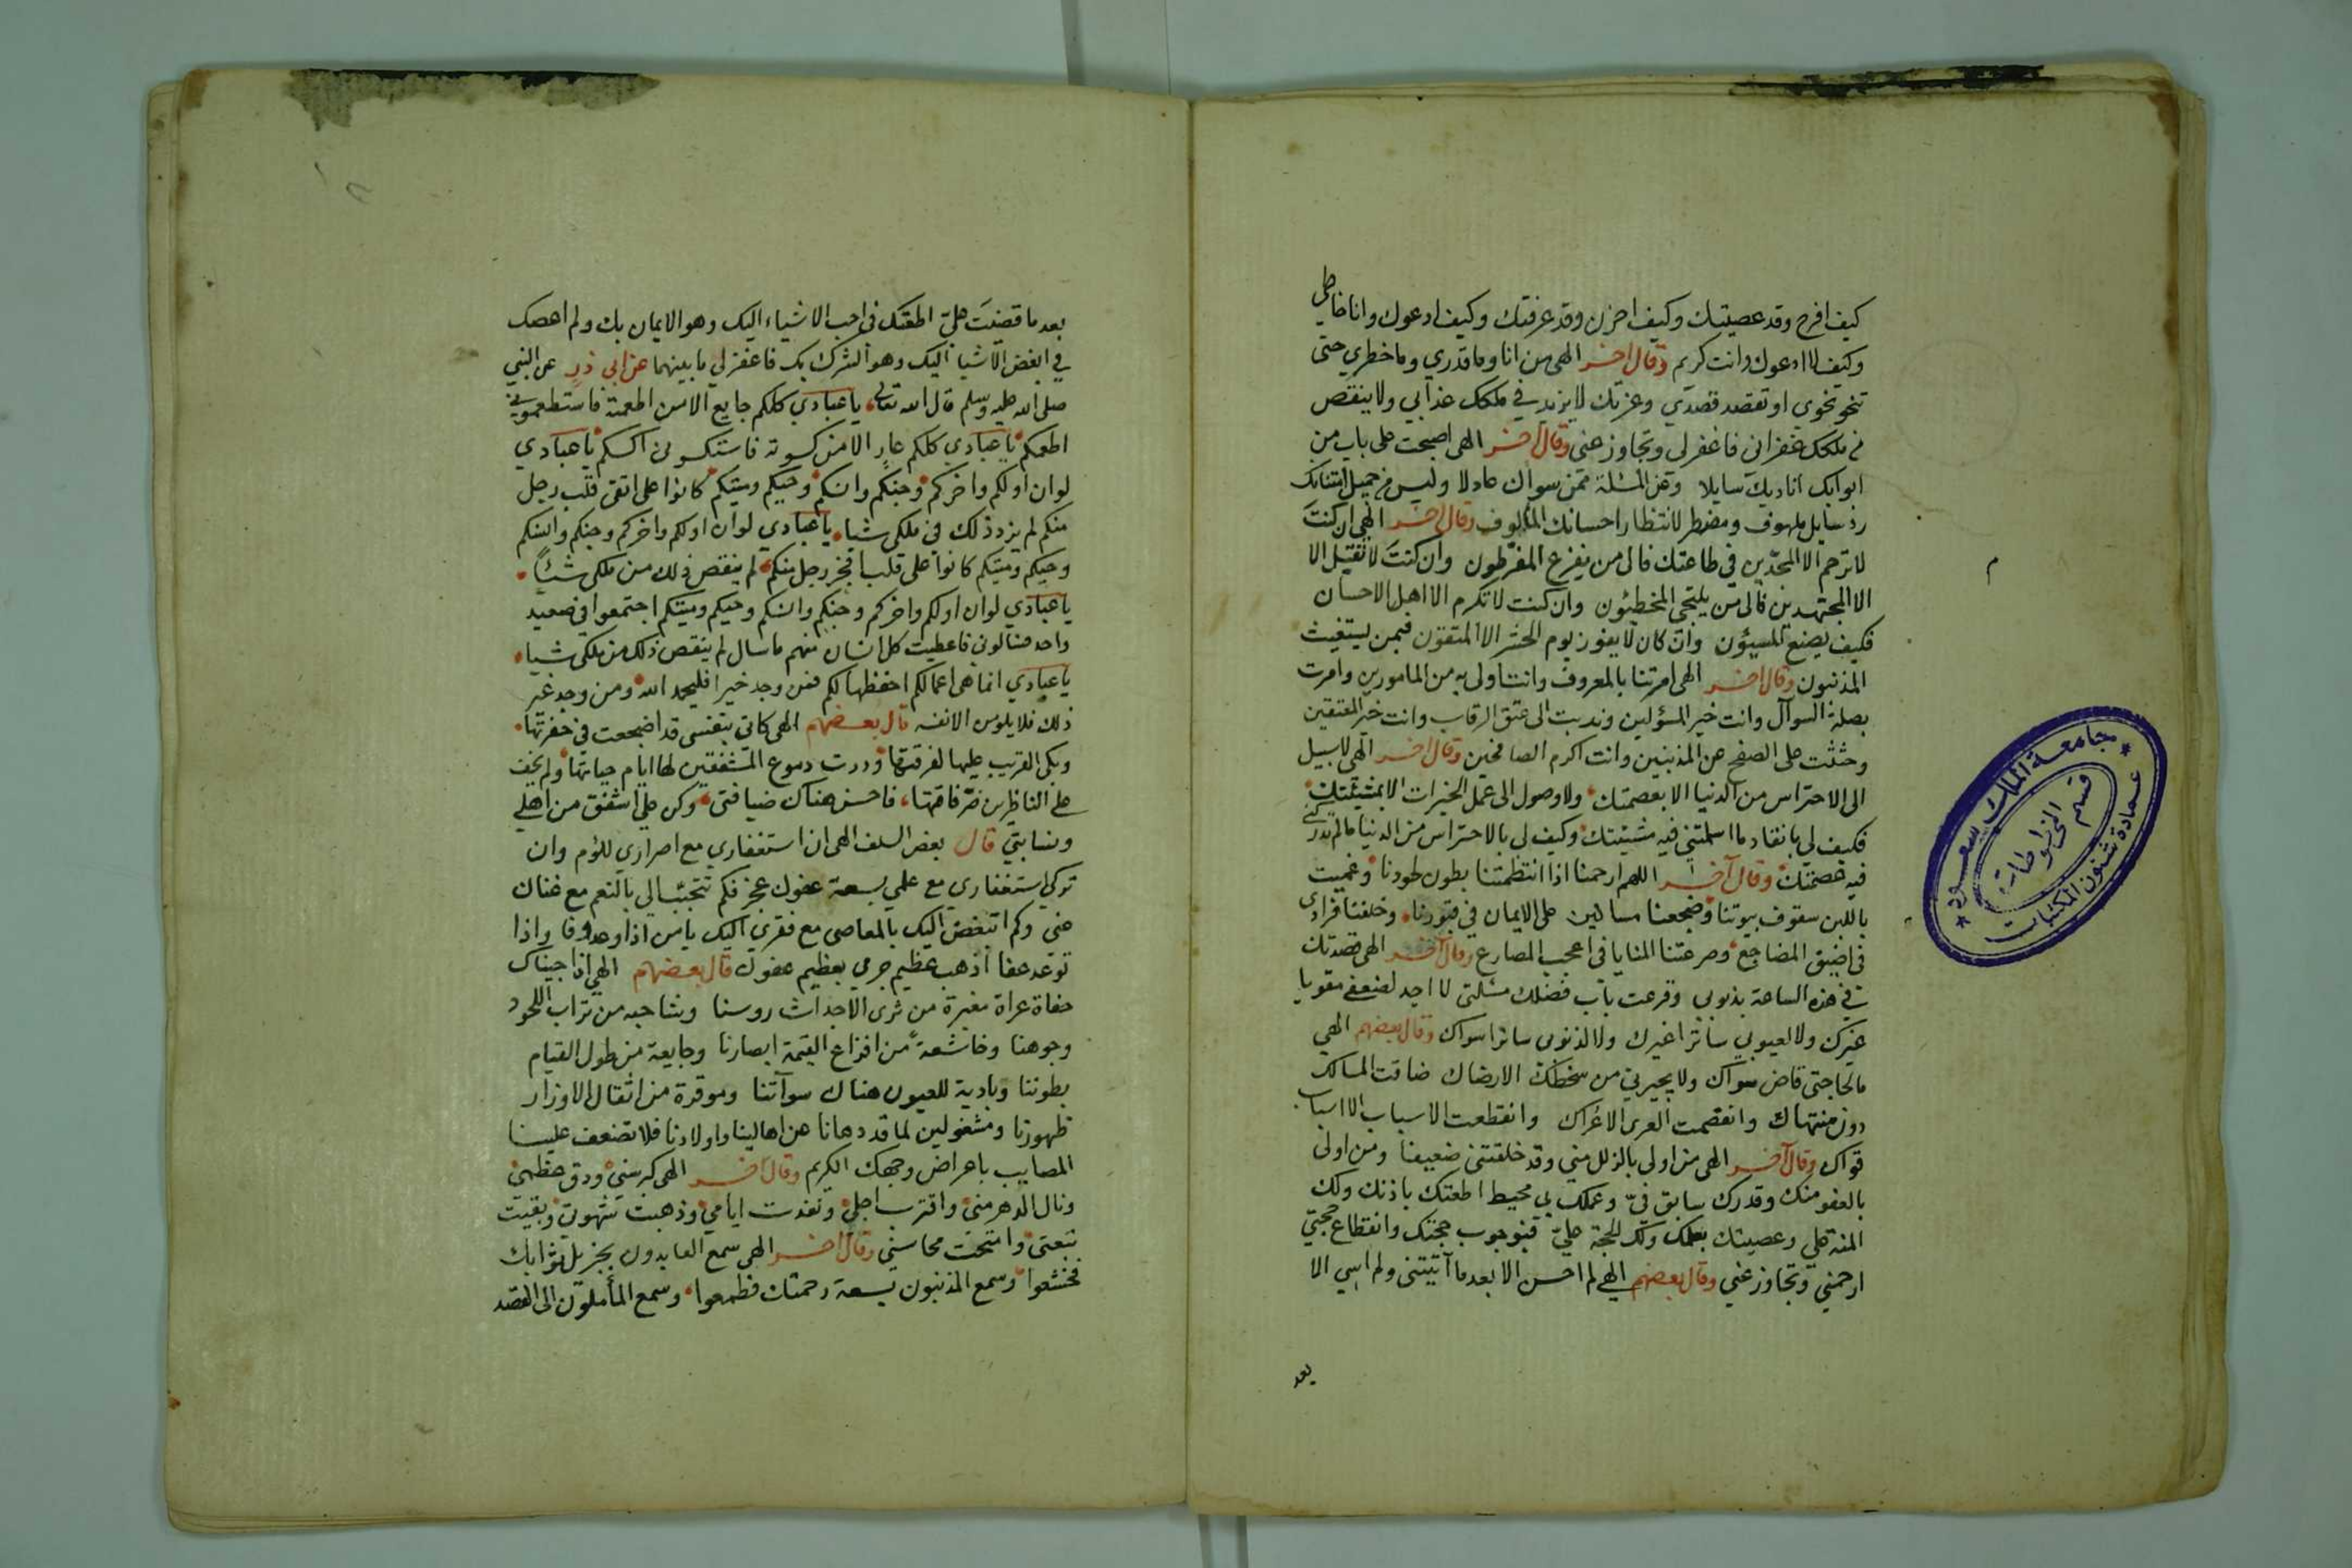 كيف افرح وقد عصيتك وكيف احزن وقد عرفتك وكيف ادعوك وانا خاطي
وكيف لا ادعوك وانت كريم وقال اخر الهي من انا وما قدري وما خطري حتى
تنحو نحوي او تقصد قصدي وعزتك لا يزيد في ملكك عذابي ولا ينقص
من ملكك غفراني فاغفر لي وتجاوز عني وقال اخر الهي اصبحت على باب من
ابوابك اناديك سايلا وعن المسئلة ممن سواك عادلا وليس من جميل امتنانك
رد سايل ملهوف ومضطر لانتظار احسانك المالوف وقال اخر الهي ان كنت
لا ترحم الا المجدين في طاعتك فالى من يفزع المفرطون وان كنت لا تقبل الا
الا المجتهدين فالى من يلتجي المخطئون وان كنت لا تكرم الا اهل الاحسان
فكيف يصنع المسيؤن وان كان لا يفوز يوم الحشر الا المتقون فبمن يستغيث
المذنبون وقال اخر الهي امرتنا بالمعروف وانت اولى به من المامورين وامرت
بصلة السوآل وانت خير المسؤلين وندبت الى عتق الرقاب وانت خير المعتقين
وحثثت على الصفح عن المذنبين وانت اكرم الصافحين وقال اخر الهي لا سبيل
الى الاحتراس من الدنيا الا بعصمتك ولا وصول الى عمل الخيرات الا بمشئتك
فكيف لي بانقاد ما اسلمتني فيه مشيئتك وكيف لي بالاحتراس من الدنيا ما لم تدركني
فيه عصمتك وقال آخر اللهم ارحمنا اذا انتظمتنا بطون لحودنا وغميت
باللبن سقوف بيوتنا وضجعنا مساكين على الايمان في قبورنا وخلفنا فرادى
في اضيق المضاجع وصرعتنا المنايا في اعجب المصارع وقال آخر الهي قصدتك
في هذه الساعة بذنوبي وقرعت باب فضلك مسئلتي لا اجد لضعفي مقويا
غيرك ولا لعيوبي ساترا غيرك ولا لذنوبي ساترا سواك وقال بعضهم الهي
ما لحاجتي قاض سواك ولا يجيرني من سخطك الا رضاك ضاقت المسالك
دون منتهاك وانفصمت العرى الا عراك وانقطعت الاسباب الا اسباب
قواك وقال آخر الهي من اولى بالزلل مني وقد خلقتني ضعيفا ومن اولى
بالعفو منك وقدرك سابق في وعملك بي محيط اطعتك باذنك ولك
المنة علي وعصيتك بعلمك ولك الحجة علي فبوجوب حجتك وانقطاع حجتي
ارحمني وتجاوز عني وقال بعضهم الهي لم احسن الا بعد ما آتيتني ولم اسي الا
بعد
بعد ما قضيت علي اطعتك في احب الاشياء اليك وهو الايمان بك ولم اعصك
في ابغض الاشيا اليك وهو الشرك بك فاغفر لي ما بينهما عن ابي ذر عن النبي
صلى الله عليه وسلم قال الله تعالى يا عبادي كلكم جايع الا من اطعمته فاستطعموني
اطعمكم يا عبادي كلكم عار الا من كسوته فاستكسوني اكسكم يا عبادي
لو ان اولكم واخركم وجنكم وانسكم وحيكم وميتكم كانوا على اتقى قلب رجل
منكم لم يزد ذلك في ملكي شيا يا عبادي لو ان اولكم واخركم وجنكم وانسكم
وحيكم وميتكم كانوا على قلب افجر رجل منكم لم ينقص ذلك من ملكي شيئا
يا عبادي لو ان اولكم واخركم وجنكم وانسكم وحيكم وميتكم اجتمعوا في صعيد
واحد فسالوني فاعطيت كل انسان منهم ما سال لم ينقص ذلك من ملكي شيا
يا عبادي انما هي اعمالكم احفظها لكم فمن وجد خيرا فليحمد الله ومن وجد غير
ذلك فلا يلومن الا نفسه قال بعضهم الهي كاني بنفسي قد اضجعت في حفرتها
وبكى القريب عليها لفرقتها ودرت دموع المشفقين لها ايام حياتها ولم يخف
على الناظرين ضر فاقتها فاحسن هناك ضيافتي وكن علي اشفق من اهلي
ونسابتي قال بعض السلف الهي ان استغفاري مع اصراري للؤم وان
تركي استغفاري مع علمي بسعة عفوك عجز فكم تتحبب الي بالنعم مع غناك
عني وكم اتبغض اليك بالمعاصي مع فقري اليك يا من اذا وعد وفا واذا
توعد عفا اذهب عظيم جرمي بعظيم عفوك قال بعضهم الهي اذا جيناك
حفاة عراة مغبرة من ثرى الاجداث روسنا وشاحبه من تراب اللحود
وجوهنا وخاشعة من افزاع القيمة ابصارنا وجايعة من طول القيام
بطوننا وبادية للعيون هناك سوآتنا وموقرة من اثقال الاوزار
ظهورنا ومشغولين لما قد دهانا عن اهالينا واولادنا فلا تضعف علينا
المصايب باعراض وجهك الكريم وقال اخر الهي كبر سني ودق عظمي
ونال الدهر مني واقترب اجلي ونفدت ايامي وذهبت شهوتي وبقيت
تبعتي وامتحت محاسني وقال اخر الهي سمع العابدون بجزيل ثوابك
فخشعوا وسمع المذنبون بسعة رحمتك فطمعوا وسمع المأملون الى القصد
جامعة الملك سعود
قسم المخطوطات
عمادة شئون المكتبات